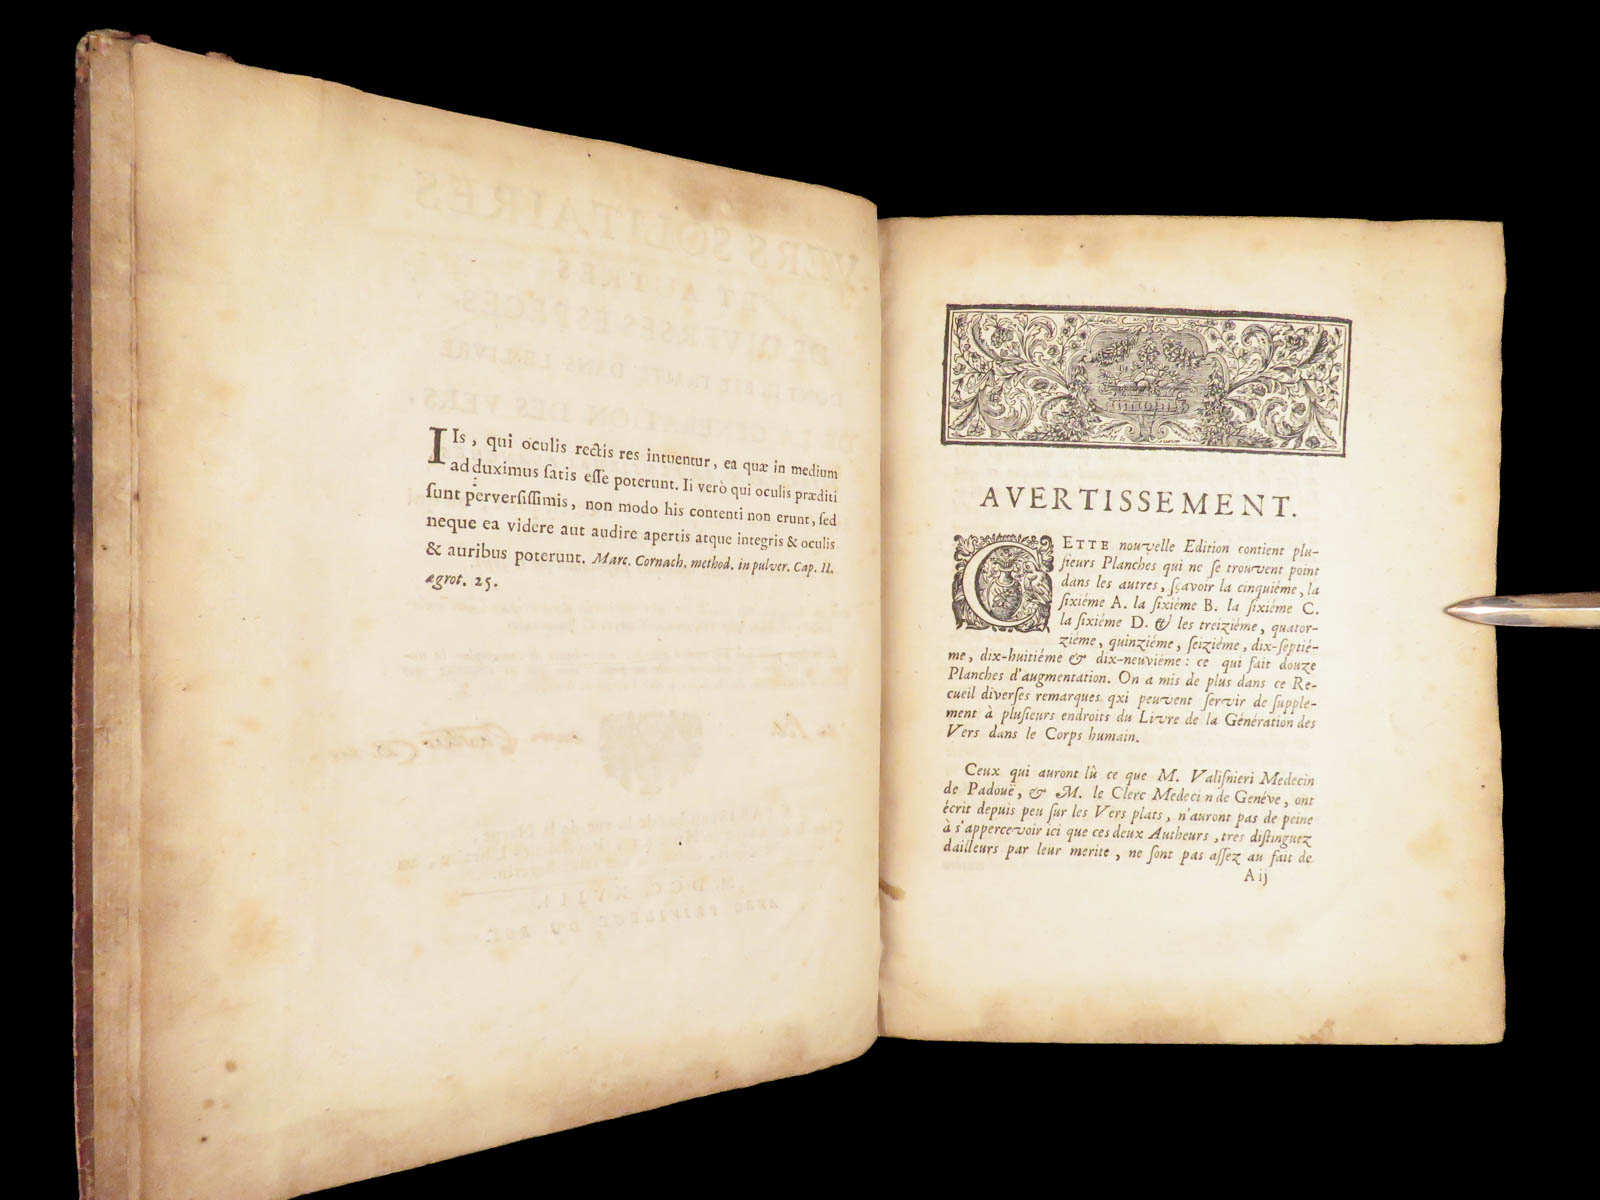 IIs, qui oculis rectis res intuentur, ea quæ in medium
adduximus ſatis eſſe poterunt. Ii verò qui oculis præditi
ſunt perverſiſſimis, non modo his contenti non erunt, ſed
neque ea videre aut audire apertis atque integris & oculis
& auribus poterunt. Marc. Cornach. method. in pulver. Cap. II.
ægrot. 25.
AVERTISSEMENT.
CETTE nouvelle Edition contient plu-
ſieurs Planches qui ne ſe trouvent point
dans les autres, ſçavoir la cinquiéme, la
ſixiéme A. la ſixiéme B. la ſixiéme C.
la ſixiéme D. & les treiziéme, quator-
ziéme, quinziéme, ſeiziéme, dix-ſeptié-
me, dix-huitiéme & dix-neuviéme : ce qui fait douze
Planches d'augmentation. On a mis de plus dans ce Re-
cueil diverſes remarques qxi peuvent ſervir de ſupple-
ment à pluſieurs endroits du Livre de la Génération des
Vers dans le Corps humain.
Ceux qui auront lû ce que M. Valiſnieri Medecin
de Padouë, & M. le Clerc Medecin de Genéve, ont
écrit depuis peu ſur les Vers plats, n'auront pas de peine
à s'appercevoir ici que ces deux Autheurs, tres diſtinguez
dailleurs par leur merite, ne ſont pas aſſez au fait de
A ij
VERS SOLITAIRES
ET AUTRES
DE DIVERSES ESPECES,
DONT IL EST TRAITÉ DANS LE LIVRE
DE LA GENERATION DES VERS,
M. DCC. XVIII.
AVEC PRIVILEGE DU ROY.